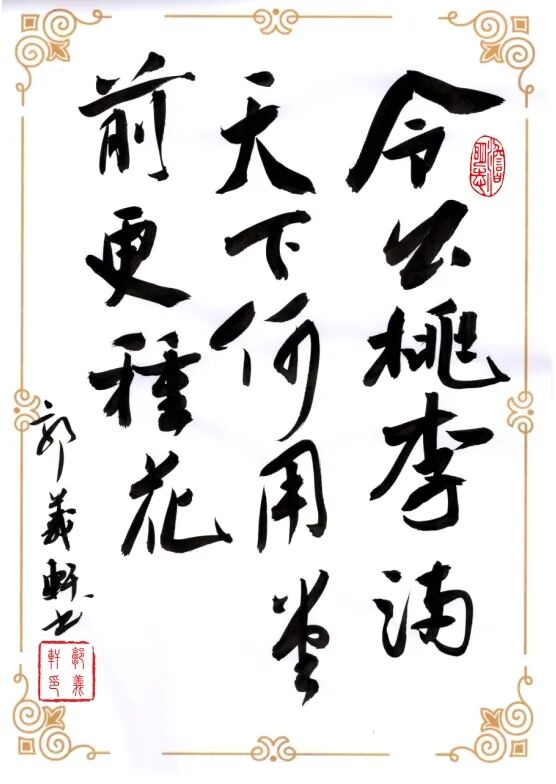 令公桃李满
天下何用堂
前更種花
郭義軒书
郭義軒印